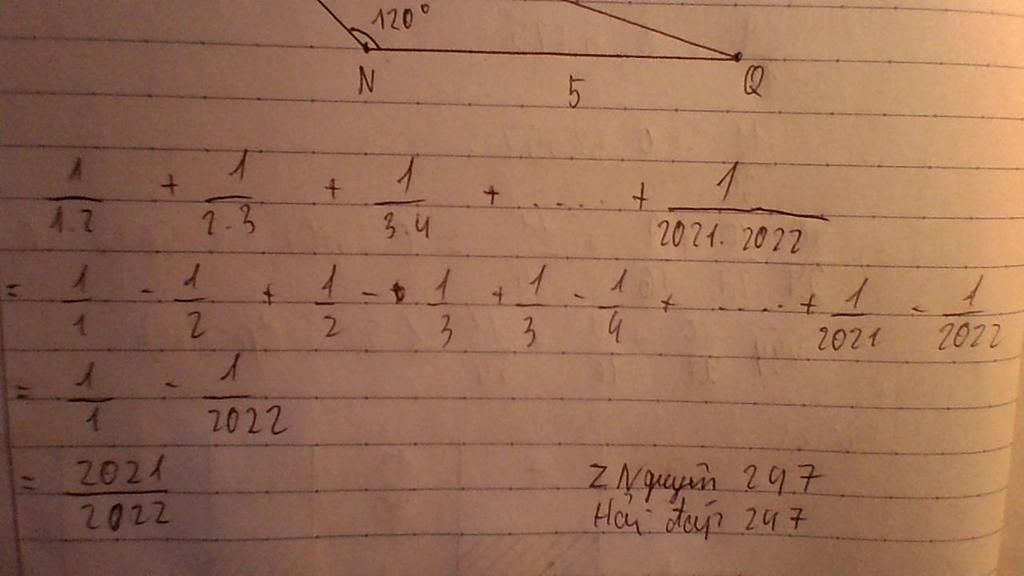 120°
N 5 Q
1/1.2 + 1/2.3 + 1/3.4 + ..... + 1/2021.2022
= 1/1 - 1/2 + 1/2 - 1/3 + 1/3 - 1/4 + ..... + 1/2021 - 1/2022
= 1/1 - 1/2022
= 2021/2022
ZNguyễn 247
Hỏi đáp 247